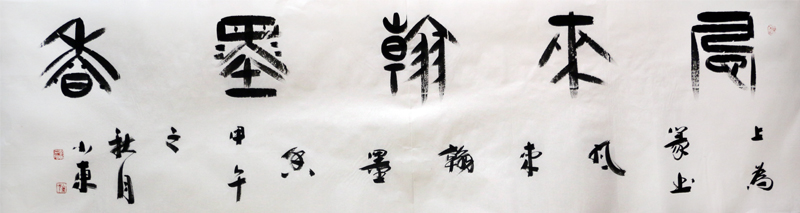 風來翰墨香
上為篆书风来翰墨香甲午之秋月小東